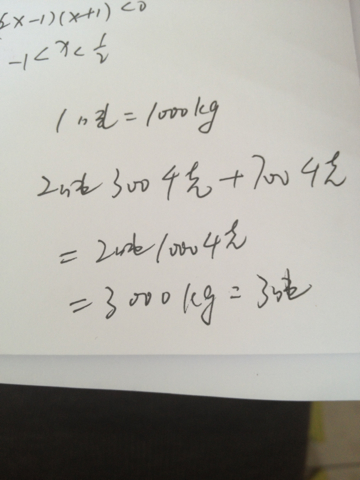 (2x-1)(x+1)<0
-1<x<1/2
1吨=1000kg
2吨300千克+700千克
=2吨1000千克
=3000kg=3吨